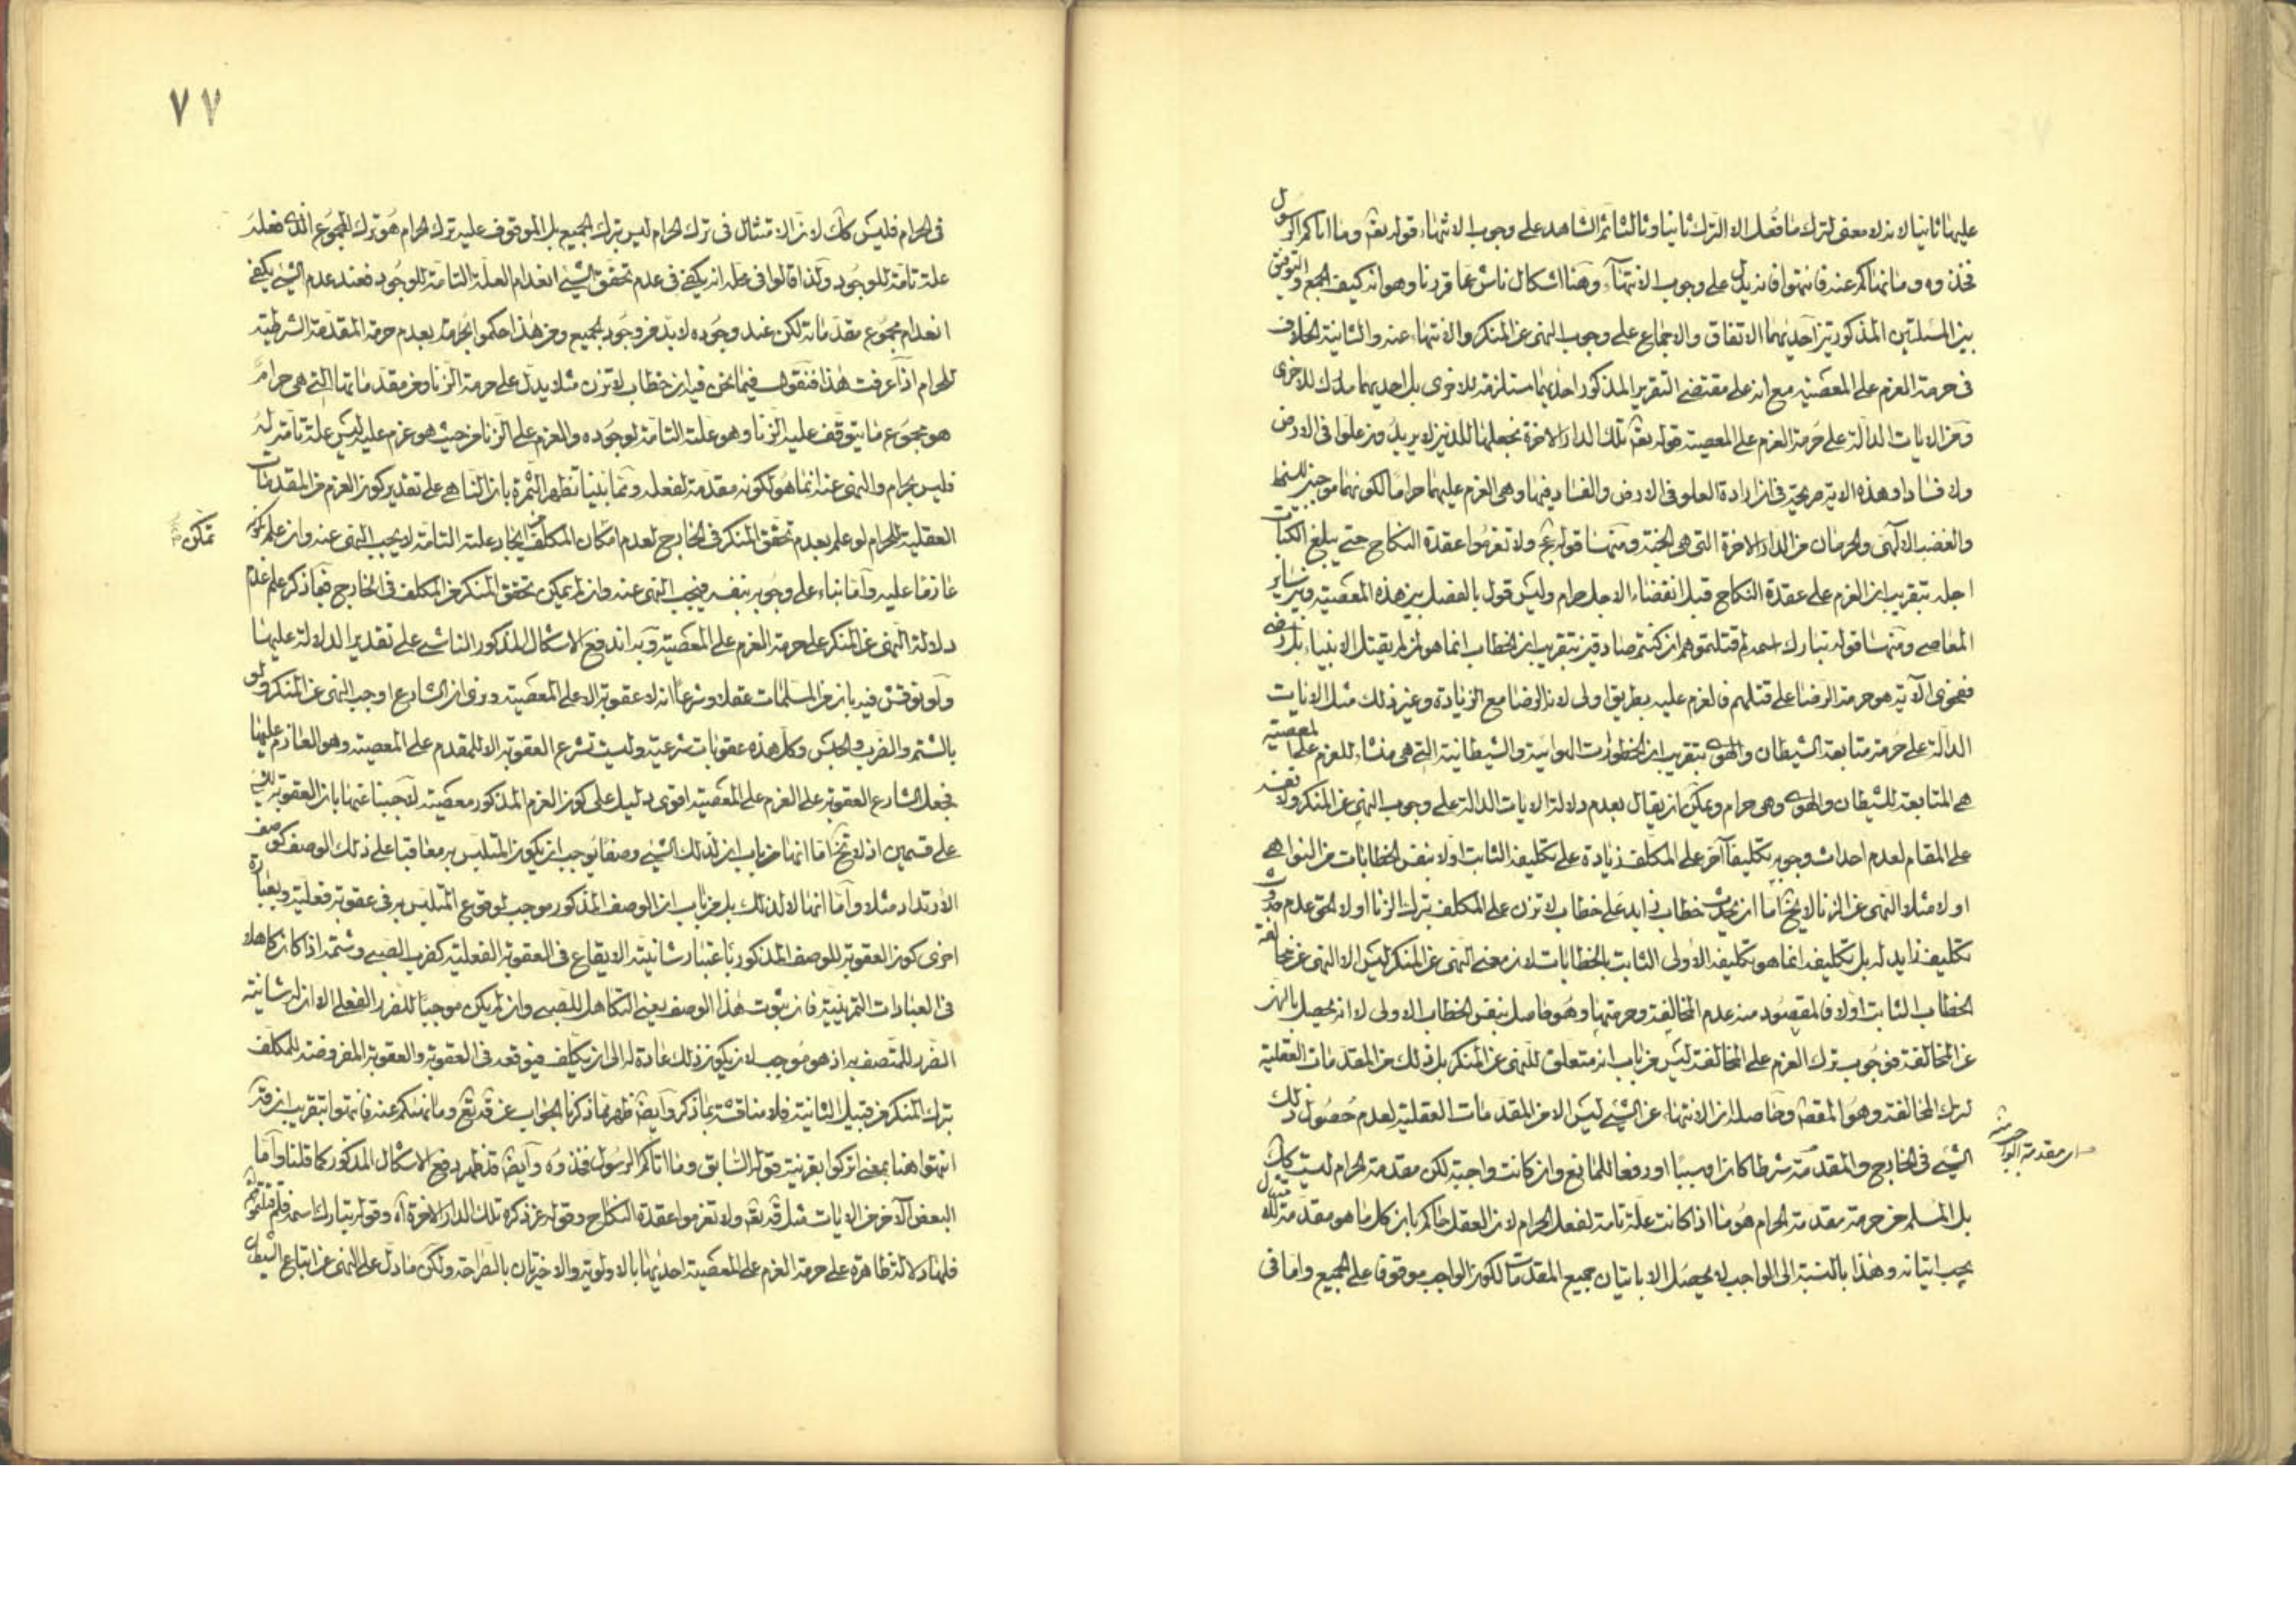 عليها ثانيا لانه لا معنى لترك ما فعل الا الترك ثانيا وثالثا ثم الشاهد على وجوب الانتهاء قوله تعه وما اتاكم الرسول
فخذوه وما نهاكم عنه فانتهوا فانه يدل على وجوب الانتهاء وهنا اشكال ناش عما قررنا وهو انه كيف الجمع والتوفيق
بين المسئلتين المذكورتين احديهما الاتفاق والاجماع على وجوب النهى عن المنكر والانتهاء عنه والثانية الخلاف
فى حرمة العزم على المعصية مع انه على مقتضى التقرير المذكور احديهما مستلزمة للاخرى بل احديهما مدرك للاخرى
ومن الايات الدالة على حرمة العزم على المعصية قوله تعه تلك الدار الاخرة نجعلها للذين لا يريدون علوا فى الارض
ولا فسادا وهذه الاية صريحة فى ان ارادة العلو فى الارض والفساد فيها وهى العزم عليهما حراما لكونهما موجبتين للسخط
والغضب الالهى والحرمان من الدار الاخرة التى هى الجنة ومنها قوله تع ولا تعزموا عقدة النكاح حتى يبلغ الكتاب
اجله بتقريب ان العزم على عقدة النكاح قبل انقضاء الاجل حرام وليس قول بالفصل بين هذه المعصية وبين سائر
المعاصى ومنها قوله تبارك اسمه لم قتلتموهم ان كنتم صادقين بتقريب ان الخطاب انما هو لمن لم يقتل الانبياء بل رضى
ففحوى الآية هو حرمة الرضا على قتلهم فالعزم عليه بطريق اولى لانه الرضا مع الزيادة وغير ذلك مثل الايات
الدالة على حرمة متابعة الشيطان والهوى بتقريب ان الخطورات الهوائية والشيطانية التى هى منشاء للعزم على المعصية
هى المتابعة للشيطان والهوى وهى حرام ويمكن ان يقال بعدم دلالة الايات الدالة على وجوب النهى عن المنكر ولا نفعه
على المقام لعدم احداث وجوبه تكليفا آخر على المكلف زيادة على تكليفه الثابت اولا بنفس الخطابات من النواهى
اولا مثلا النهى عن الزنا لا يخ اما ان يحدث خطاب زايد على خطاب لا تزن على المكلف بترك الزنا اولا الحق عدم حدوث
تكليف زايد له بل تكليفه انما هو تكليفه الاولى الثابت بالخطابات لان معنى النهى عن المنكر ليس الا النهى عن مخالفة
الخطاب الثابت اولا فالمقصود منه عدم المخالفة وحرمتها وهو حاصل بنفس الخطاب الاولى لا انه يحصل بالنهى
عن المخالفة فوجوب ترك العزم على المخالفة ليس من باب انه متعلق للنهى عن المنكر بل ذلك من المقدمات العقلية
لترك المخالفة وهو المقصه وحاصله ان الانتهاء عن الشئ ليس الا من المقدمات العقلية لعدم حصول ذلك
الشئ فى الخارج والمقدمة شرطا كان او سببا او رفعا للمانع وان كانت واجبة لكن مقدمة الحرام ليست كك
بل المسلم من حرمة مقدمة الحرام هو ما اذا كانت علة تامة لفعل الحرام لان العقل حاكم بان كل ما هو مقدمة
يجب اتيانه وهذا بالنسبة الى الواجب لا يحصل الا باتيان جميع المقدمات لكون الواجب موقوفا على الجميع واما فى
مقدمة الواجب
٧٧
فى الحرام فليس كك لان الامتثال فى ترك الحرام ليس بترك الجميع بل الموقوف عليه ترك الحرام هو ترك المجموع الذى فعله
علة تامة للوجود ولذا قالوا فى محله انه يكفى فى عدم تحقق الشئ انعدام العلة التامة للوجود فعند عدم الشئ يكفى
انعدام مجموع مقدماته لكن عند وجوده لابد من وجود الجميع ومن هذا حكموا بعدم حرمة المقدمة الشرطية
للحرام اذا عرفت هذا فنقول فيما نحن فيه ان خطاب لا تزن مثلا يدل على حرمة الزنا ومن مقدماتها التى هى حرام
هو مجموع ما يتوقف عليه الزنا وهو علته التامة لوجوده والعزم على الزنا من حيث هو عزم عليه ليس علة تامة له
فليس بحرام والنهى عنه انما هو لكونه مقدمة لفعله ومما بينا تظهر الثمرة بان الناهى على تقدير كون العزم من المقدمات
العقلية للحرام لو علم بعدم تحقق المنكر فى الخارج لعدم امكان المكلف من ايجاد علته التامة لا يجب النهى عنه وان علم بكونه
تمكن
عازما عليه واما بناء على وجوبه بنفسه فيجب النهى عنه وان لم يمكن تحقق المنكر من المكلف فى الخارج فبما ذكر علم عدم
دلالة النهى عن المنكر على حرمة العزم على المعصية وبه اندفع الاشكال المذكور الناشى على تقدير الدلالة عليها
ولو نوقش فيه بان من المسلمات عقلا وشرعا انه لا عقوبة الا على المعصية ونرى ان الشارع اوجب النهى عن المنكر ولو
بالشتم والضرب والحبس وكل هذه عقوبات شرعية وليست تشرع العقوبة الا للمقدم على المعصية وهو العازم عليها
فجعل الشارع العقوبة على العزم على المعصية اقوى دليل على كون العزم المذكور معصية لاجبنا عنها بان العقوبة للشئ
على قسمين اذ لا يخ اما انها من باب ان لذلك الشئ وصفا يوجب ان يكون المتلبس به معاقبا على ذلك الوصف كوصف
الارتداد مثلا واما انها لا لذلك بل من باب ان الوصف المذكور موجب لوقوع المتلبس به فى عقوبة فعلية وبعبارة
اخرى كون العقوبة للوصف المذكور باعتبار شانية الايقاع فى العقوبة الفعلية كضرب الصبى وشتمه اذا كان كاهلا
فى العبادات التمرينية فان ثبوت هذا الوصف يعنى التكاهل للصبى وان لم يكن موجبا للضرر الفعلى الا ان له شانية
الضرر للمتصف به اذ هو موجب لان يكون ذلك عادة له الى ان يكلف فيوقعه فى العقوبة والعقوبة المفروضة للمكلف
بترك المنكر من قبيل الثانية فلا مناقشة بما ذكر وايضا ظهر مما ذكرنا الجواب عن قوله تع وما نهيكم عنه فانتهوا بتقريب ان قوله
انتهوا هنا بمعنى اتركوا بقرينة قوله السابق وما اتاكم الرسول فخذوه وايضا قد ظهر دفع الاشكال المذكور كما قلنا واما
البعض الآخر من الايات مثل قوله تعه ولا تعزموا عقدة النكاح وقوله عز ذكره تلك الدار الاخرة اه وقوله تبارك اسمه فلم قتلتموهم
فلها دلالة ظاهرة على حرمة العزم على المعصية احديها بالاولوية والاخريان بالصراحة ولكن ما دل على النهى عن اتباع الشيطان